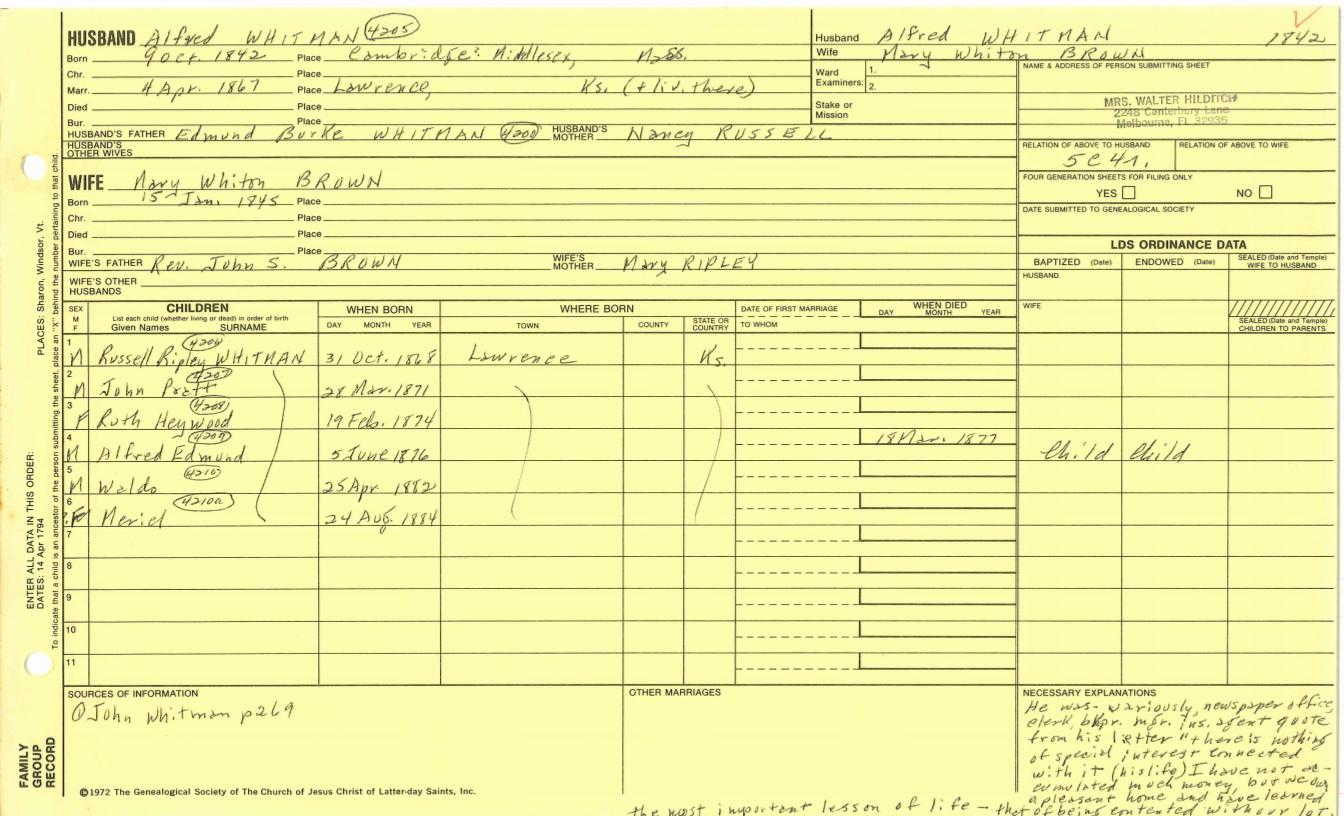 HUSBAND Alfred WHITMAN 4205
Born 9 Oct. 1842 Place Cambridge: Middlesex, Mass.
Chr. Place
Marr. 4 Apr. 1867 Place Lawrence, Ks. (+ liv. there)
Died Place
Bur. Place
HUSBAND'S FATHER Edmund Burke WHITMAN 4200 HUSBAND'S MOTHER Nancy RUSSELL
HUSBAND'S OTHER WIVES
WIFE Mary Whiton BROWN
Born 15 Jan. 1845 Place
Chr. Place
Died Place
Bur. Place
WIFE'S FATHER Rev. John S. BROWN WIFE'S MOTHER Mary RIPLEY
WIFE'S OTHER HUSBANDS
Husband Alfred WHITMAN 1842
Wife Mary Whiton BROWN
Ward Examiners: 1.
2.
Stake or Mission
NAME & ADDRESS OF PERSON SUBMITTING SHEET
MRS. WALTER HILDITCH
2248 Canterbury Lane
Melbourne, FL 32935
RELATION OF ABOVE TO HUSBAND RELATION OF ABOVE TO WIFE
5C4r.
FOUR GENERATION SHEETS FOR FILING ONLY
YES NO
DATE SUBMITTED TO GENEALOGICAL SOCIETY
LDS ORDINANCE DATA
BAPTIZED (Date) ENDOWED (Date) SEALED (Date and Temple) WIFE TO HUSBAND
HUSBAND
WIFE
SEALED (Date and Temple) CHILDREN TO PARENTS
SEX M F
CHILDREN
List each child (whether living or dead) in order of birth
Given Names SURNAME
WHEN BORN
DAY MONTH YEAR
WHERE BORN
TOWN COUNTY STATE OR COUNTRY
DATE OF FIRST MARRIAGE
TO WHOM
WHEN DIED
DAY MONTH YEAR
1 M Russell Ripley WHITMAN 4206 31 Oct. 1868 Lawrence Ks.
2 M John Pratt 4207 28 Mar. 1871
3 F Ruth Heywood 4208 19 Feb. 1874
4 M Alfred Edmund 4209 5 June 1876 18 Mar. 1877 Child Child
5 M Waldo 4210 25 Apr 1882
6 F Meriel 4210a 24 Aug. 1884
7
8
9
10
11
SOURCES OF INFORMATION
John Whitman p269
OTHER MARRIAGES
NECESSARY EXPLANATIONS
He was - variously, newspaper office
clerk, bkpr. mgr. ins. agent quote
from his letter "there is nothing
of special interest connected
with it (his life) I have not ac-
cumulated much money, but we own
a pleasant home and have learned
the most important lesson of life - that of being contented with our lot.
©1972 The Genealogical Society of The Church of Jesus Christ of Latter-day Saints, Inc.
FAMILY GROUP RECORD
ENTER ALL DATA IN THIS ORDER:
DATES: 14 Apr 1794 PLACES: Sharon, Windsor, Vt.
To indicate that a child is an ancestor of the person submitting the sheet, place an "X" behind the number pertaining to that child.